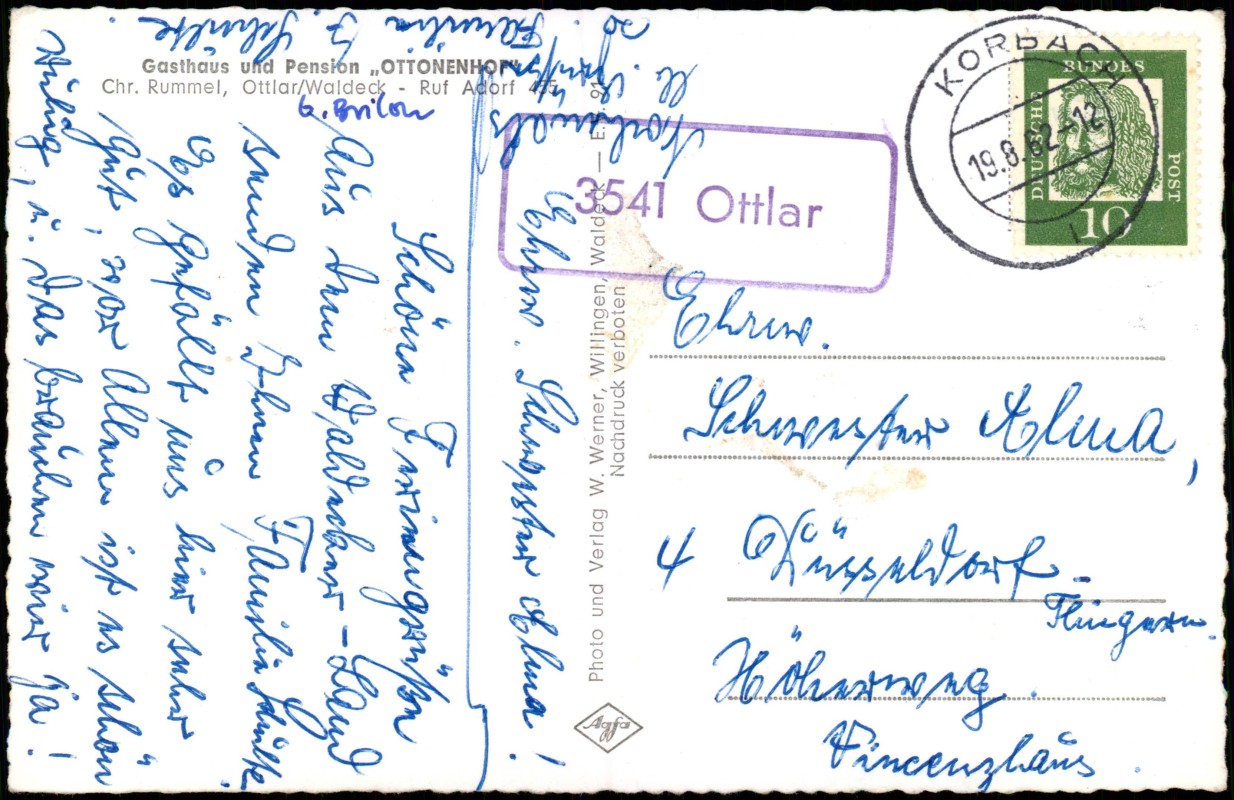 Gasthaus und Pension „OTTONENHOF"
Chr. Rummel, Ottlar/Waldeck - Ruf Adorf 455
b. Brilon
Ehrw. Schwester Alma!
Schöne Feriengrüße
Aus dem Waldecker-Land
senden Ihnen Familie Schulte.
Es gefällt uns hier sehr
gut, vor Allem ist es schön
ruhig, u. das brauchen wir ja!
Familie F. Schulte.
Photo und Verlag W. Werner, Willingen, Waldeck — E.
Nachdruck verboten
Agfa
3541 Ottlar
KORBACH
19.8.62-12
DEUTSCHE
BUNDES
POST
10
Ehrw.
Schwester Alma,
4 Düsseldorf-
Flingern.
Höherweg.
Vincenzhaus